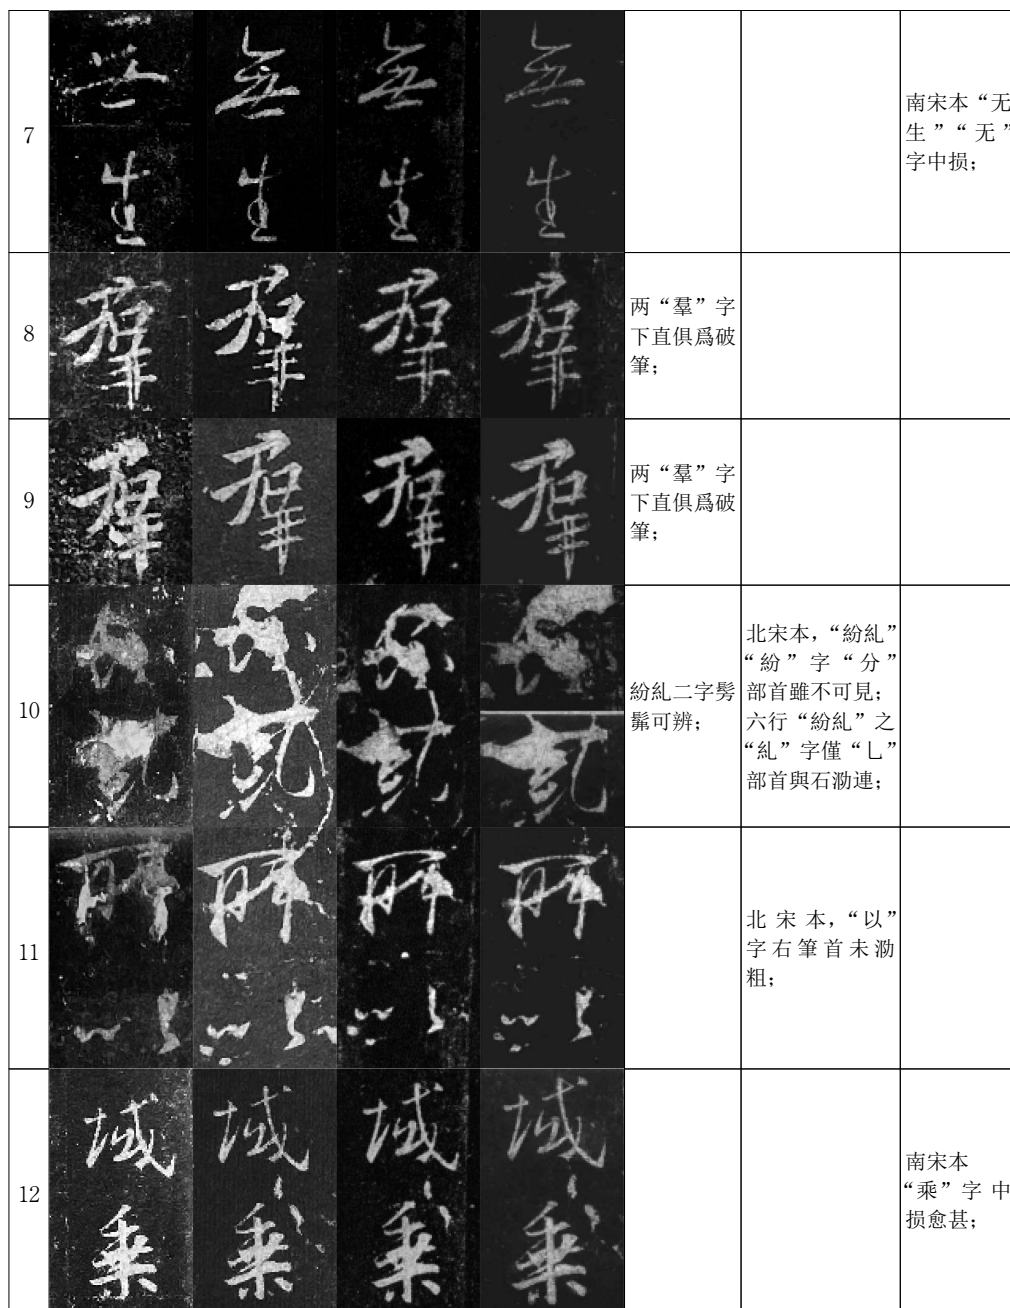 7
無
生
南宋本“无
生”“无”
字中损;
8
羣
两“羣”字
下直俱爲破
筆;
9
羣
两“羣”字
下直俱爲破
筆;
10
紛糺二字髣
髴可辨;
北宋本，“紛糺”
“紛”字“分”
部首雖不可見;
六行“紛糺”之
“糺”字僅“乚”
部首與石泐連;
11
所
以
北宋本，“以”
字右筆首未泐
粗;
12
城
乘
南宋本
“乘”字中
损愈甚;